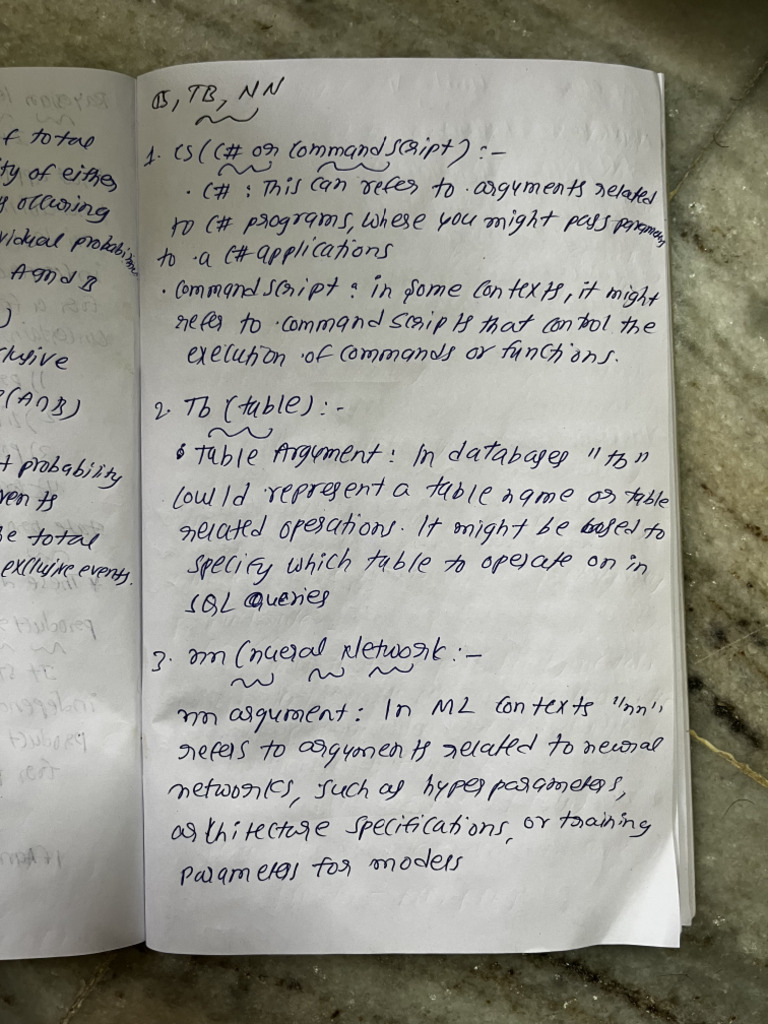 f total
ity of either
g occuring
vidual probabi
A and B
)
clusive
P(A∩B)
t probability
vents
e total
exclusive events.
CS, TB, NN
1. CS (C# or Command script) :-
• C# : This can refer to arguments related
to C# programs, where you might pass params
to a C# applications
• Command script : in some contexts, it might
refer to command scripts that control the
execution of commands or functions.
2. Tb (table) :-
• Table Argument : In databases "tb"
could represent a table name or table
related operations. It might be used to
specify which table to operate on in
SQL Queries
3. nn (nueral Network :-
nn argument : In ML contexts "nn"
refers to arguments related to neural
networks, such as hyperparameters,
architecture specifications, or training
parameters for models